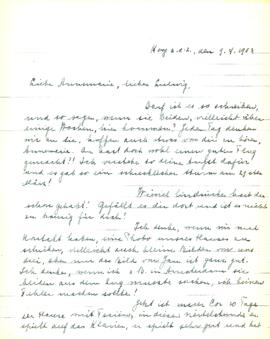 den 9.4.1983
Liebe Annemarie, lieber Ludwig,
Darf ich es so schreiben,
und so sagen, wenn sie beiden, vielleicht über
einige Wochen, hier kommen? Jeden Tag denken
wir an die, hoffen auch etwas von dir zu hören,
Annemarie. Du hast doch wohl einen guten Flug
gemacht!! Ich verstehe so deine Angst dafür
und es gab so ein schrecklicher Sturm am 29
März!
hast du
schon gehabt! Gefällt es die dort und ist es nicht
zu für dich!
Ich denke, wenn wir mal
Kontakt haben, eine Photo unseres Hauses zu
schicken, vielleicht auch kleine Bilder von uns
drei, aber nur das Bild von Jan ist ganz gut.
Ich denke, wenn ich z.B. in Amsterdam sie
beiden aus dem Zug musste suchen, ich keinen
Fehler machen sollte!
Jetzt ist unser Cor 10 Tage
zu Hause mit Ferien, in diesem
spielt auf das Klavier, er spielt sehr gut und hat